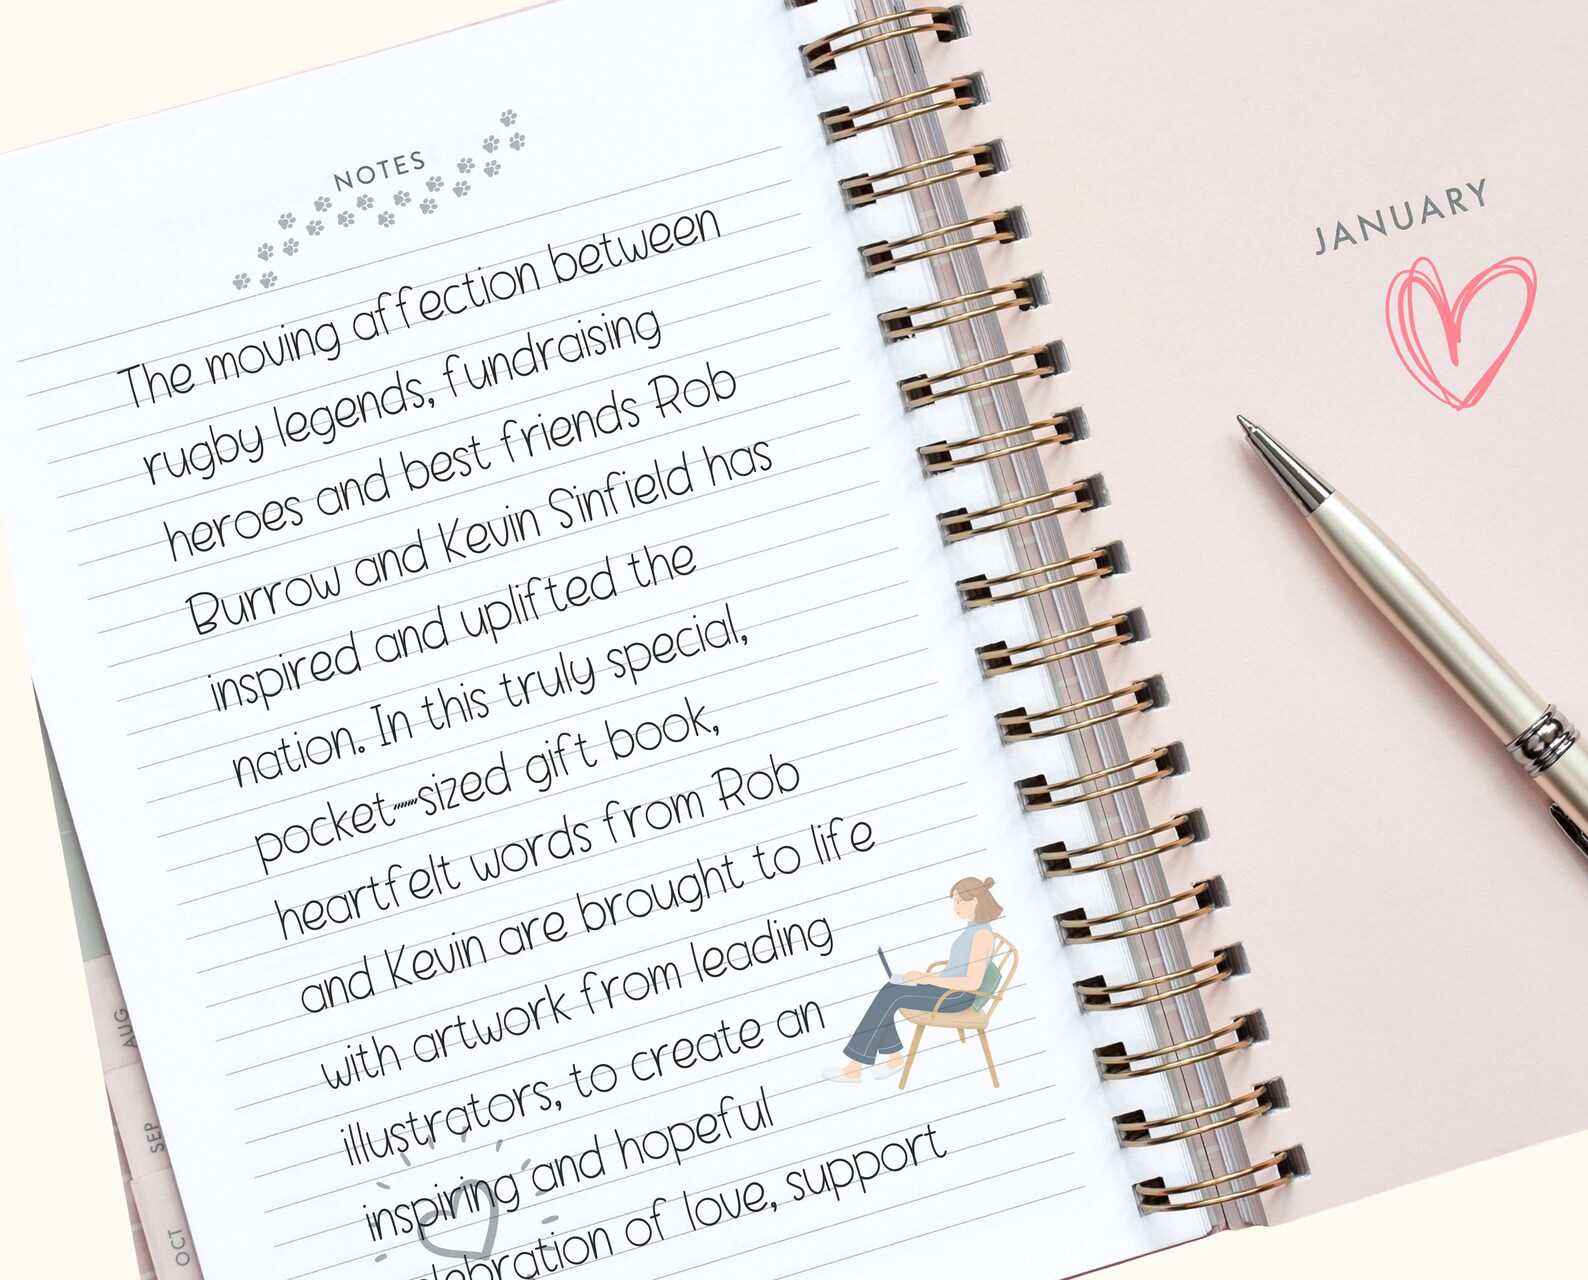 NOTES
The moving affection between
rugby legends, fundraising
heroes and best friends Rob
Burrow and Kevin Sinfield has
inspired and uplifted the
nation. In this truly special,
pocket-sized gift book,
heartfelt words from Rob
and Kevin are brought to life
with artwork from leading
illustrators, to create an
inspiring and hopeful
lebration of love, support
JANUARY
AUG
SEP
OCT